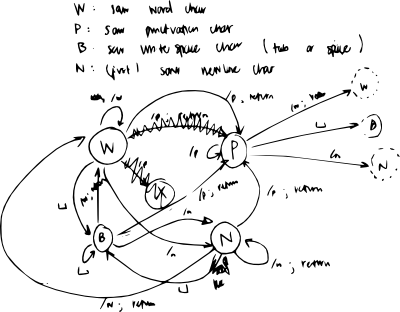 W : saw word char
P : saw punctuation char
B : saw white space char (tab or space)
N : (first) saw newline char
/w
/p, return
W
W
P
/p
B
/p
/n
N
/p ; return
/p ; return
B
/n
/n
N
/n ; return
; return